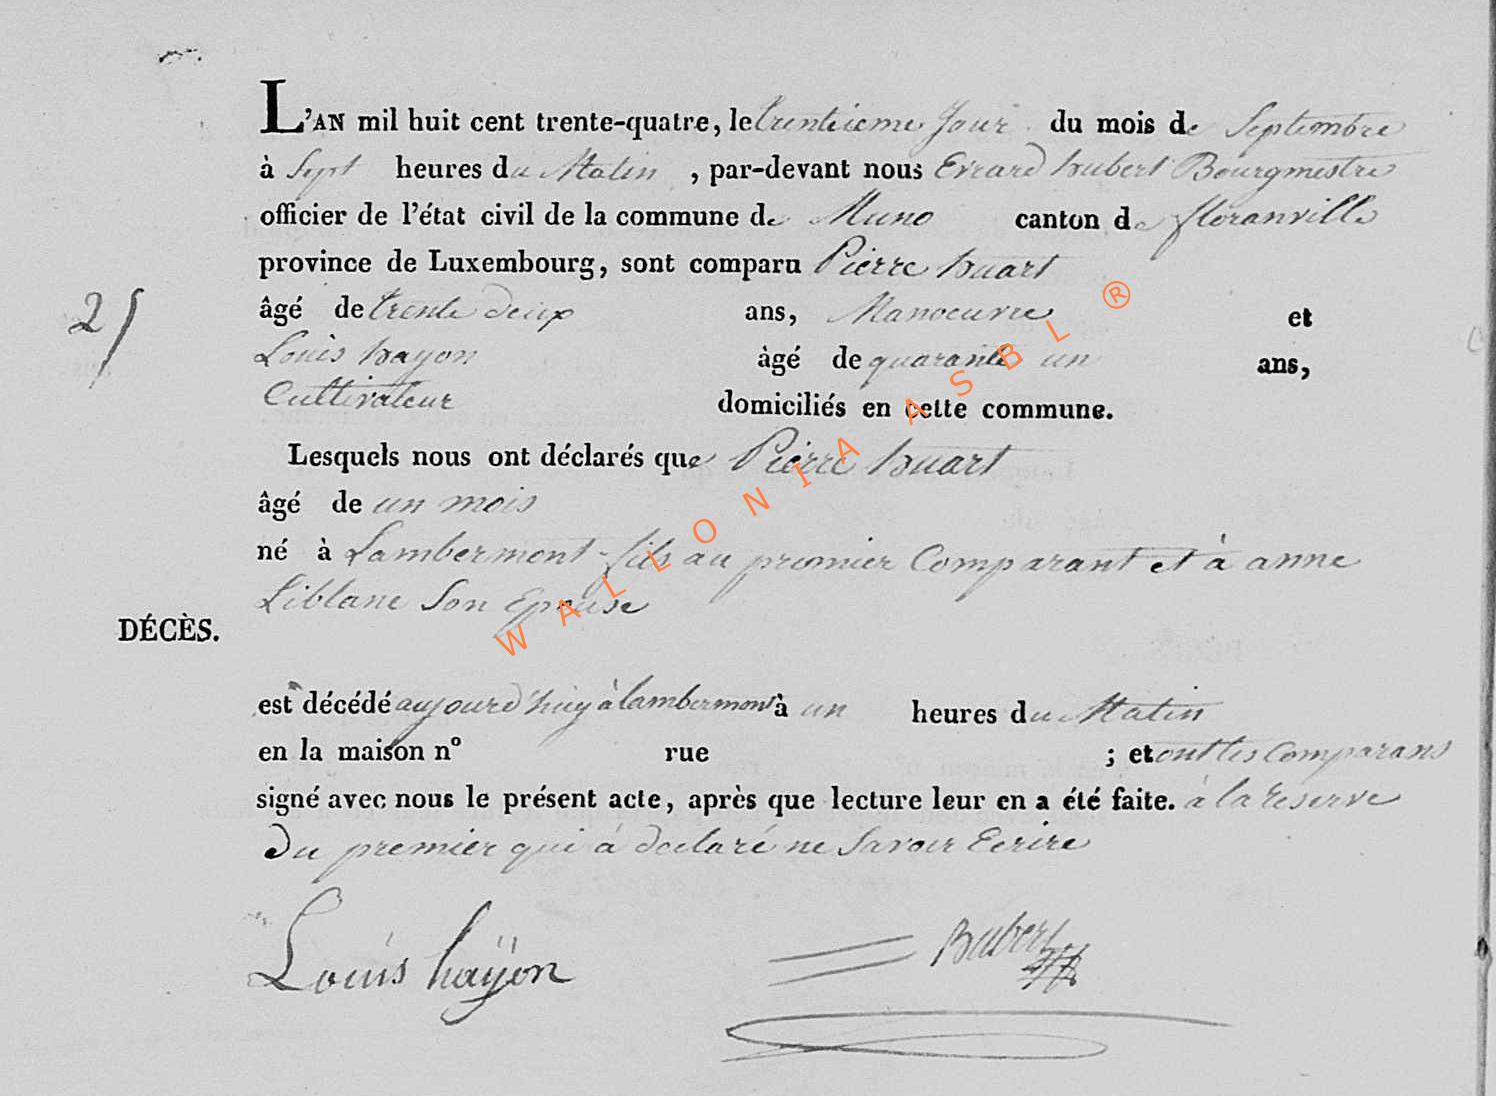 L'AN mil huit cent trente-quatre, le trentieme Jour du mois de Septembre
à Sept heures du Matin , par-devant nous Evrard hubert Bourgmestre
officier de l'état civil de la commune de Muno canton de floranville
province de Luxembourg, sont comparu Pierre huart
âgé de trente deux ans, Manoeuvre et
Louis hayon âgé de quarante un ans,
Cultivateur domiciliés en cette commune.
Lesquels nous ont déclarés que Pierre huart
âgé de un mois
né à Lambermont fils au premier Comparant et à anne
Liblane Son Epouse
DÉCÈS.
est décédé aujourd'huy à lambermont à un heures du Matin
en la maison nº rue ; et ont les Comparans
signé avec nous le présent acte, après que lecture leur en a été faite. à la reserve
Du premier qui à declaré ne Savoir Ecrire
Louis haÿon hubert
WALLONIA ASBL ®